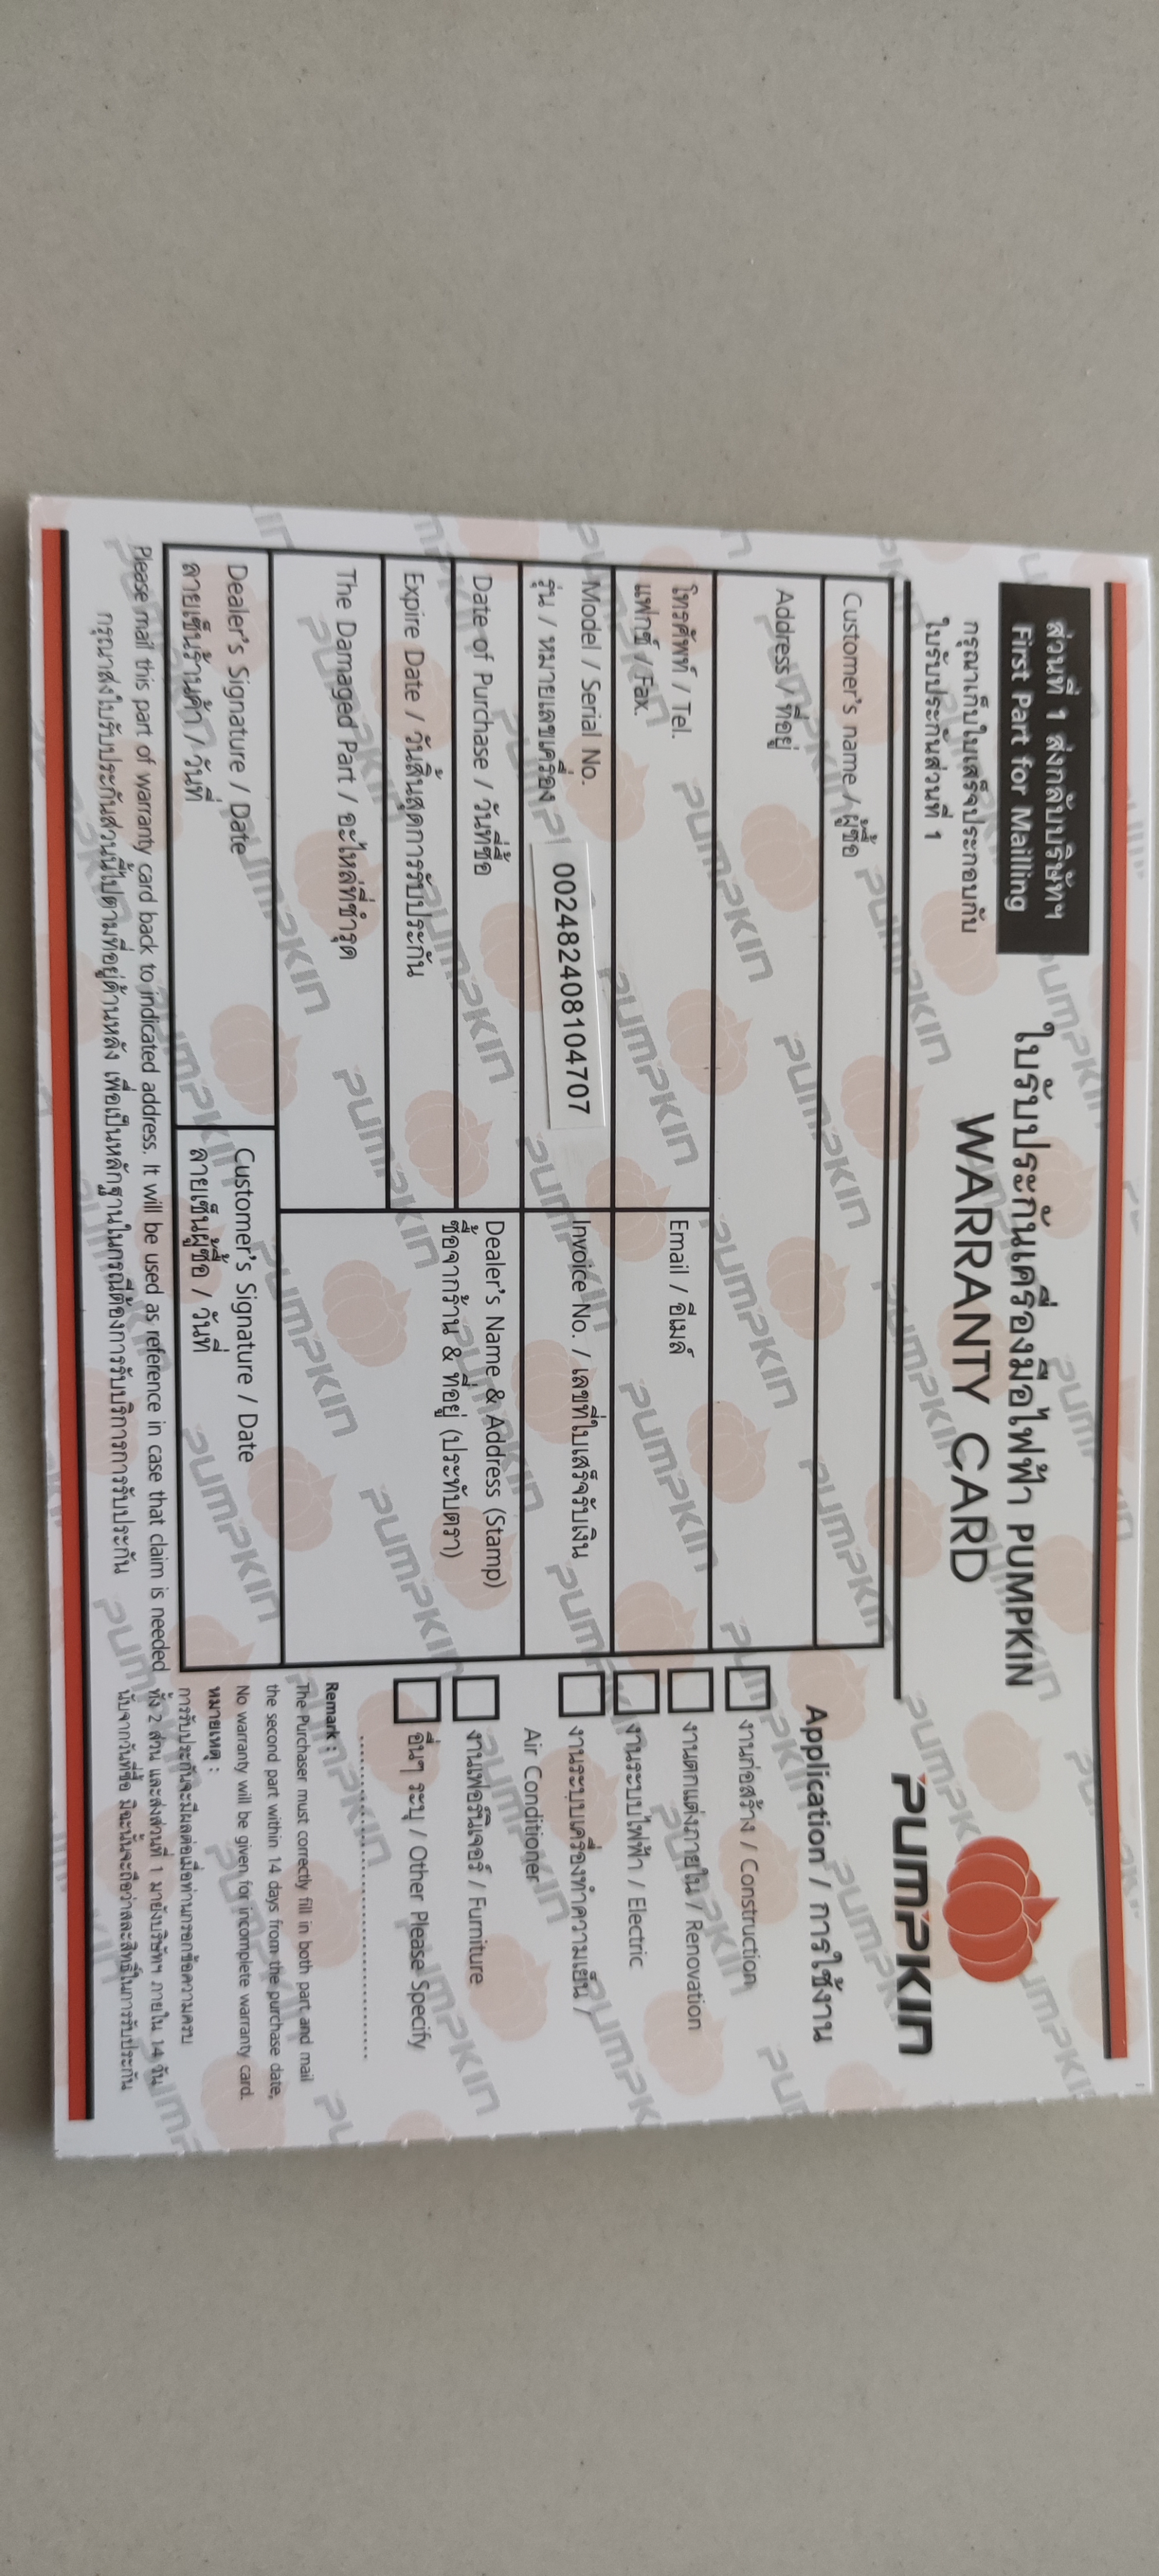 ส่วนที่ 1 ส่งกลับบริษัทฯ
First Part for Mailling
กรุณาเก็บใบเสร็จประกอบกับ
ใบรับประกันส่วนที่ 1
ใบรับประกันเครื่องมือไฟฟ้า PUMPKIN
WARRANTY CARD
PUMPKIN
Customer's name / ผู้ซื้อ
Address / ที่อยู่
โทรศัพท์ / Tel.
แฟกซ์ / Fax.
Email / อีเมล์
Model / Serial No.
รุ่น / หมายเลขเครื่อง
002482408104707
Invoice No. / เลขที่ใบเสร็จรับเงิน
Date of Purchase / วันที่ซื้อ
Expire Date / วันสิ้นสุดการรับประกัน
Dealer's Name & Address (Stamp)
ซื้อจากร้าน & ที่อยู่ (ประทับตรา)
The Damaged Part / อะไหล่ที่ชำรุด
Dealer's Signature / Date
ลายเซ็นร้านค้า / วันที่
Customer's Signature / Date
ลายเซ็นผู้ซื้อ / วันที่
Please mail this part of warranty card back to indicated address. It will be used as reference in case that claim is needed
กรุณาส่งใบรับประกันส่วนนี้ไปตามที่อยู่ด้านหลัง เพื่อเป็นหลักฐานในกรณีต้องการรับบริการการรับประกัน
Application / การใช้งาน
งานก่อสร้าง / Construction
งานตกแต่งภายใน / Renovation
งานระบบไฟฟ้า / Electric
งานระบบเครื่องทำความเย็น /
Air Conditioner
งานเฟอร์นิเจอร์ / Furniture
อื่นๆ ระบุ / Other Please Specify
Remark :
The Purchaser must correctly fill in both part and mail
the second part within 14 days from the purchase date,
No warranty will be given for incomplete warranty card.
หมายเหตุ :
การรับประกันจะมีผลต่อเมื่อท่านกรอกข้อความครบ
ทั้ง 2 ส่วน และส่งส่วนที่ 1 มายังบริษัทฯ ภายใน 14 วัน
นับจากวันที่ซื้อ มิฉะนั้นจะถือว่าสละสิทธิ์ในการรับประกัน